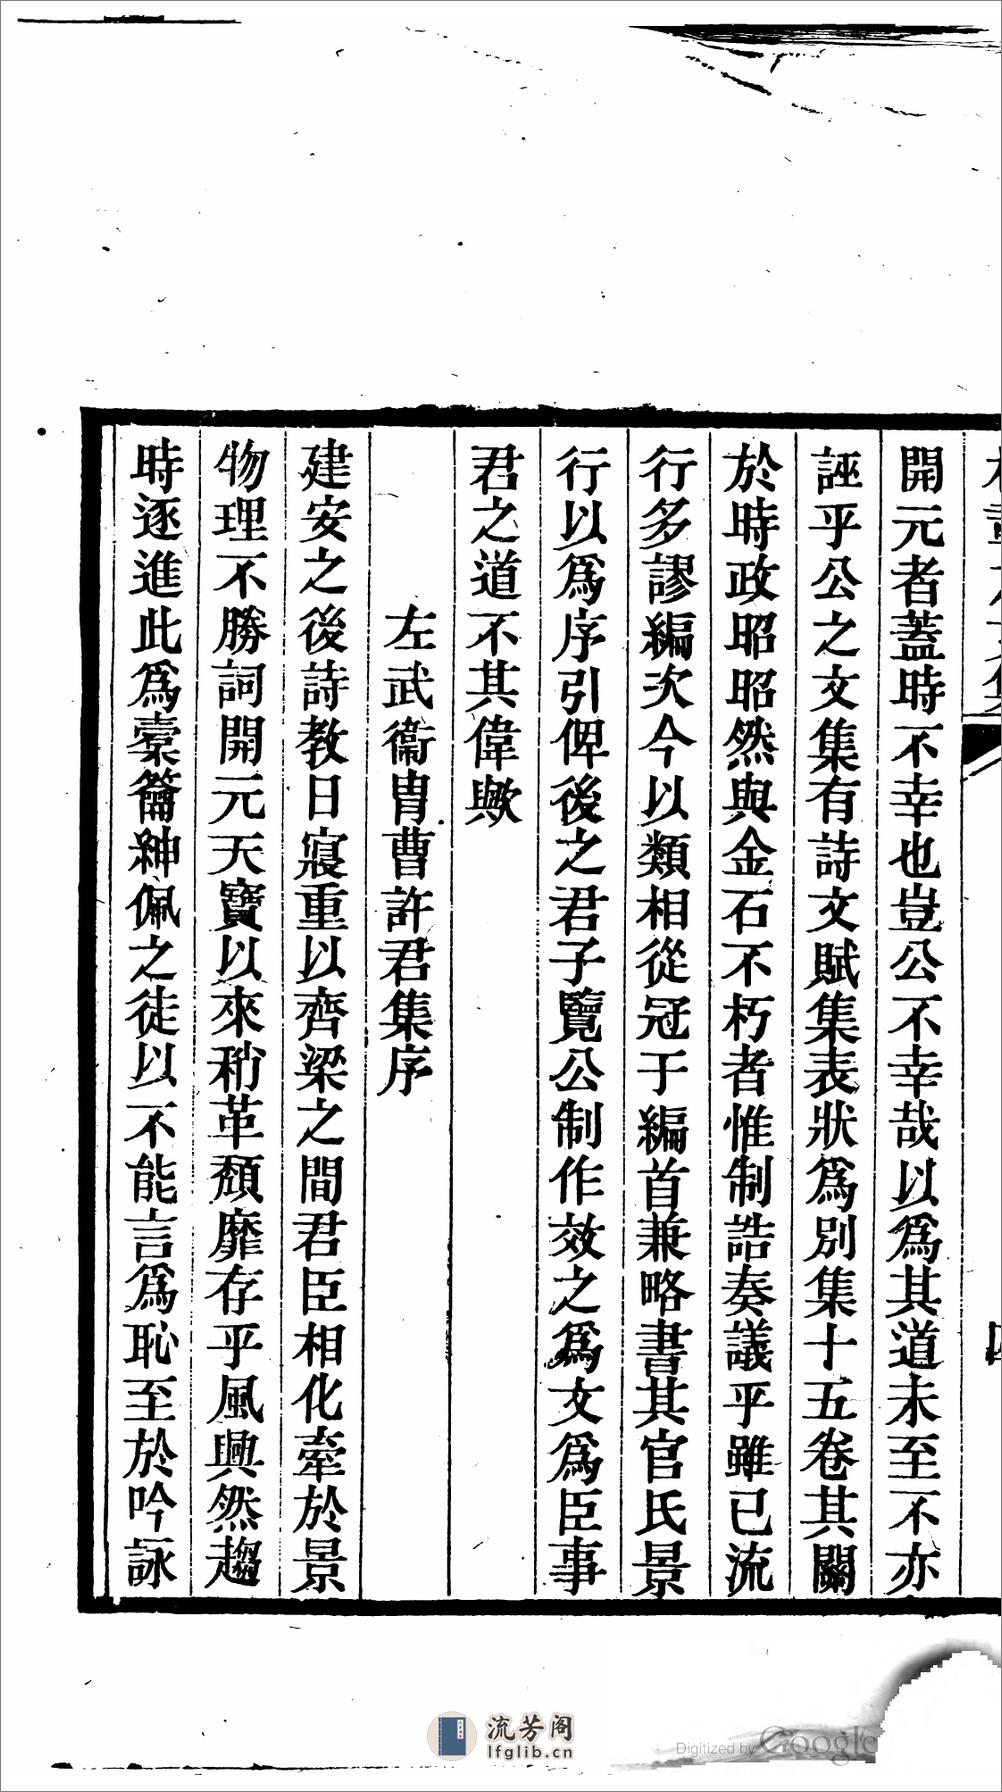 開元者蓋時不幸也豈公不幸哉以爲其道未至不亦
誣乎公之文集有詩文賦集表狀爲別集十五卷其關
於時政昭昭然與金石不朽者惟制誥奏議乎雖已流
行多謬編次今以類相從冠于編首兼略書其官氏景
行以爲序引俾後之君子覽公制作效之爲文爲臣事
君之道不其偉歟
左武衞胄曹許君集序
建安之後詩教日寢重以齊梁之間君臣相化牽於景
物理不勝詞開元天寶以來稍革頹靡存乎風興然趨
時逐進此爲橐籥紳佩之徒以不能言爲恥至於吟詠
流芳阁
lfglib.cn
Digitized by Google